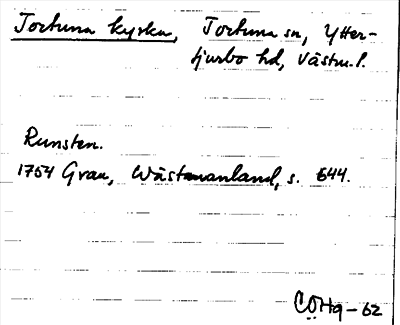 Tortuna kyrka, Tortuna sn, Ytter-
tjurbo hd, Västm.l.
Runsten.
1754 Grau, Wästmanland, s. 644.
CÖHg-62